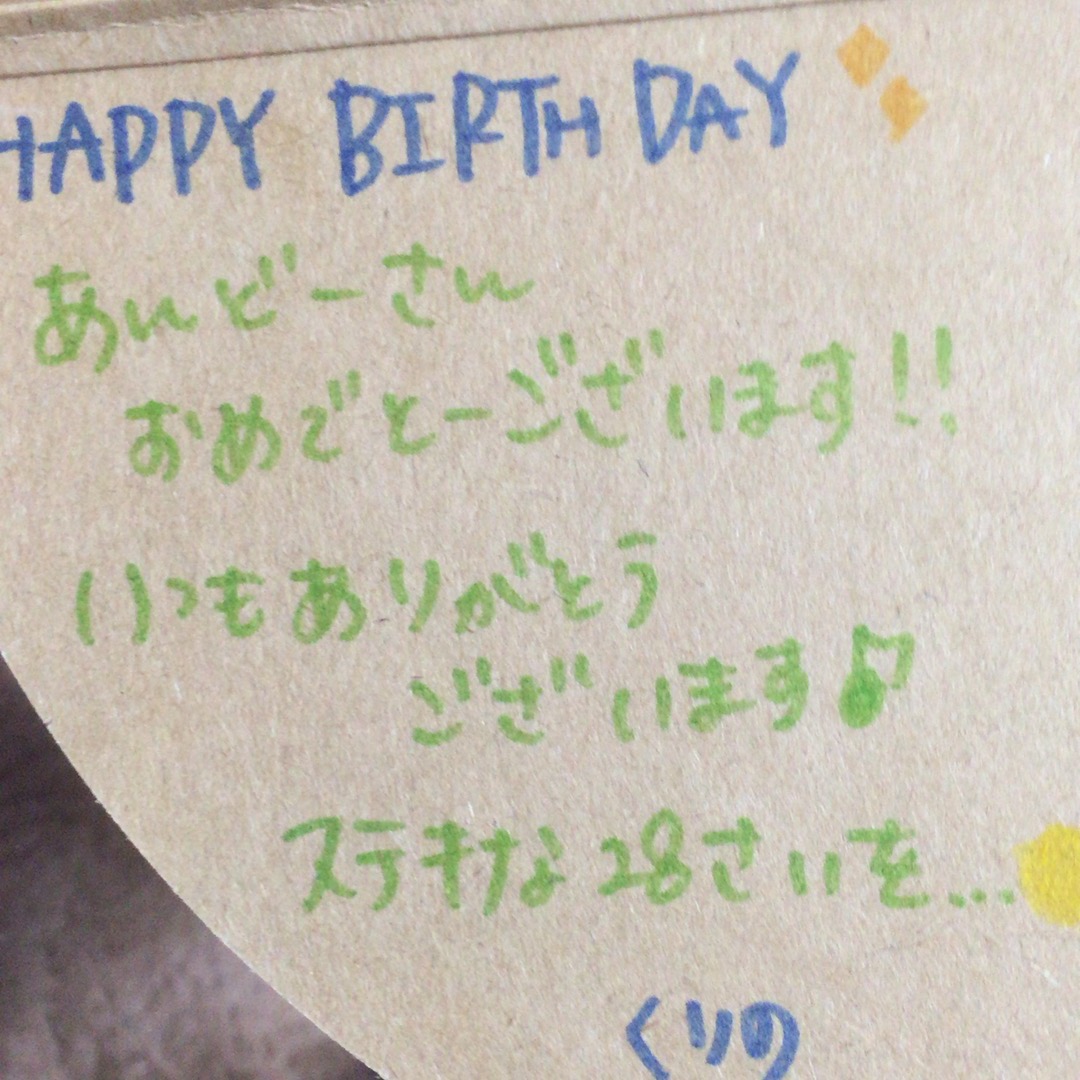 HAPPY BIRTHDAY
あんどーさん
おめでとーございます!!
いつもありがとう
ございます♪
ステキな28さいを...
くりの